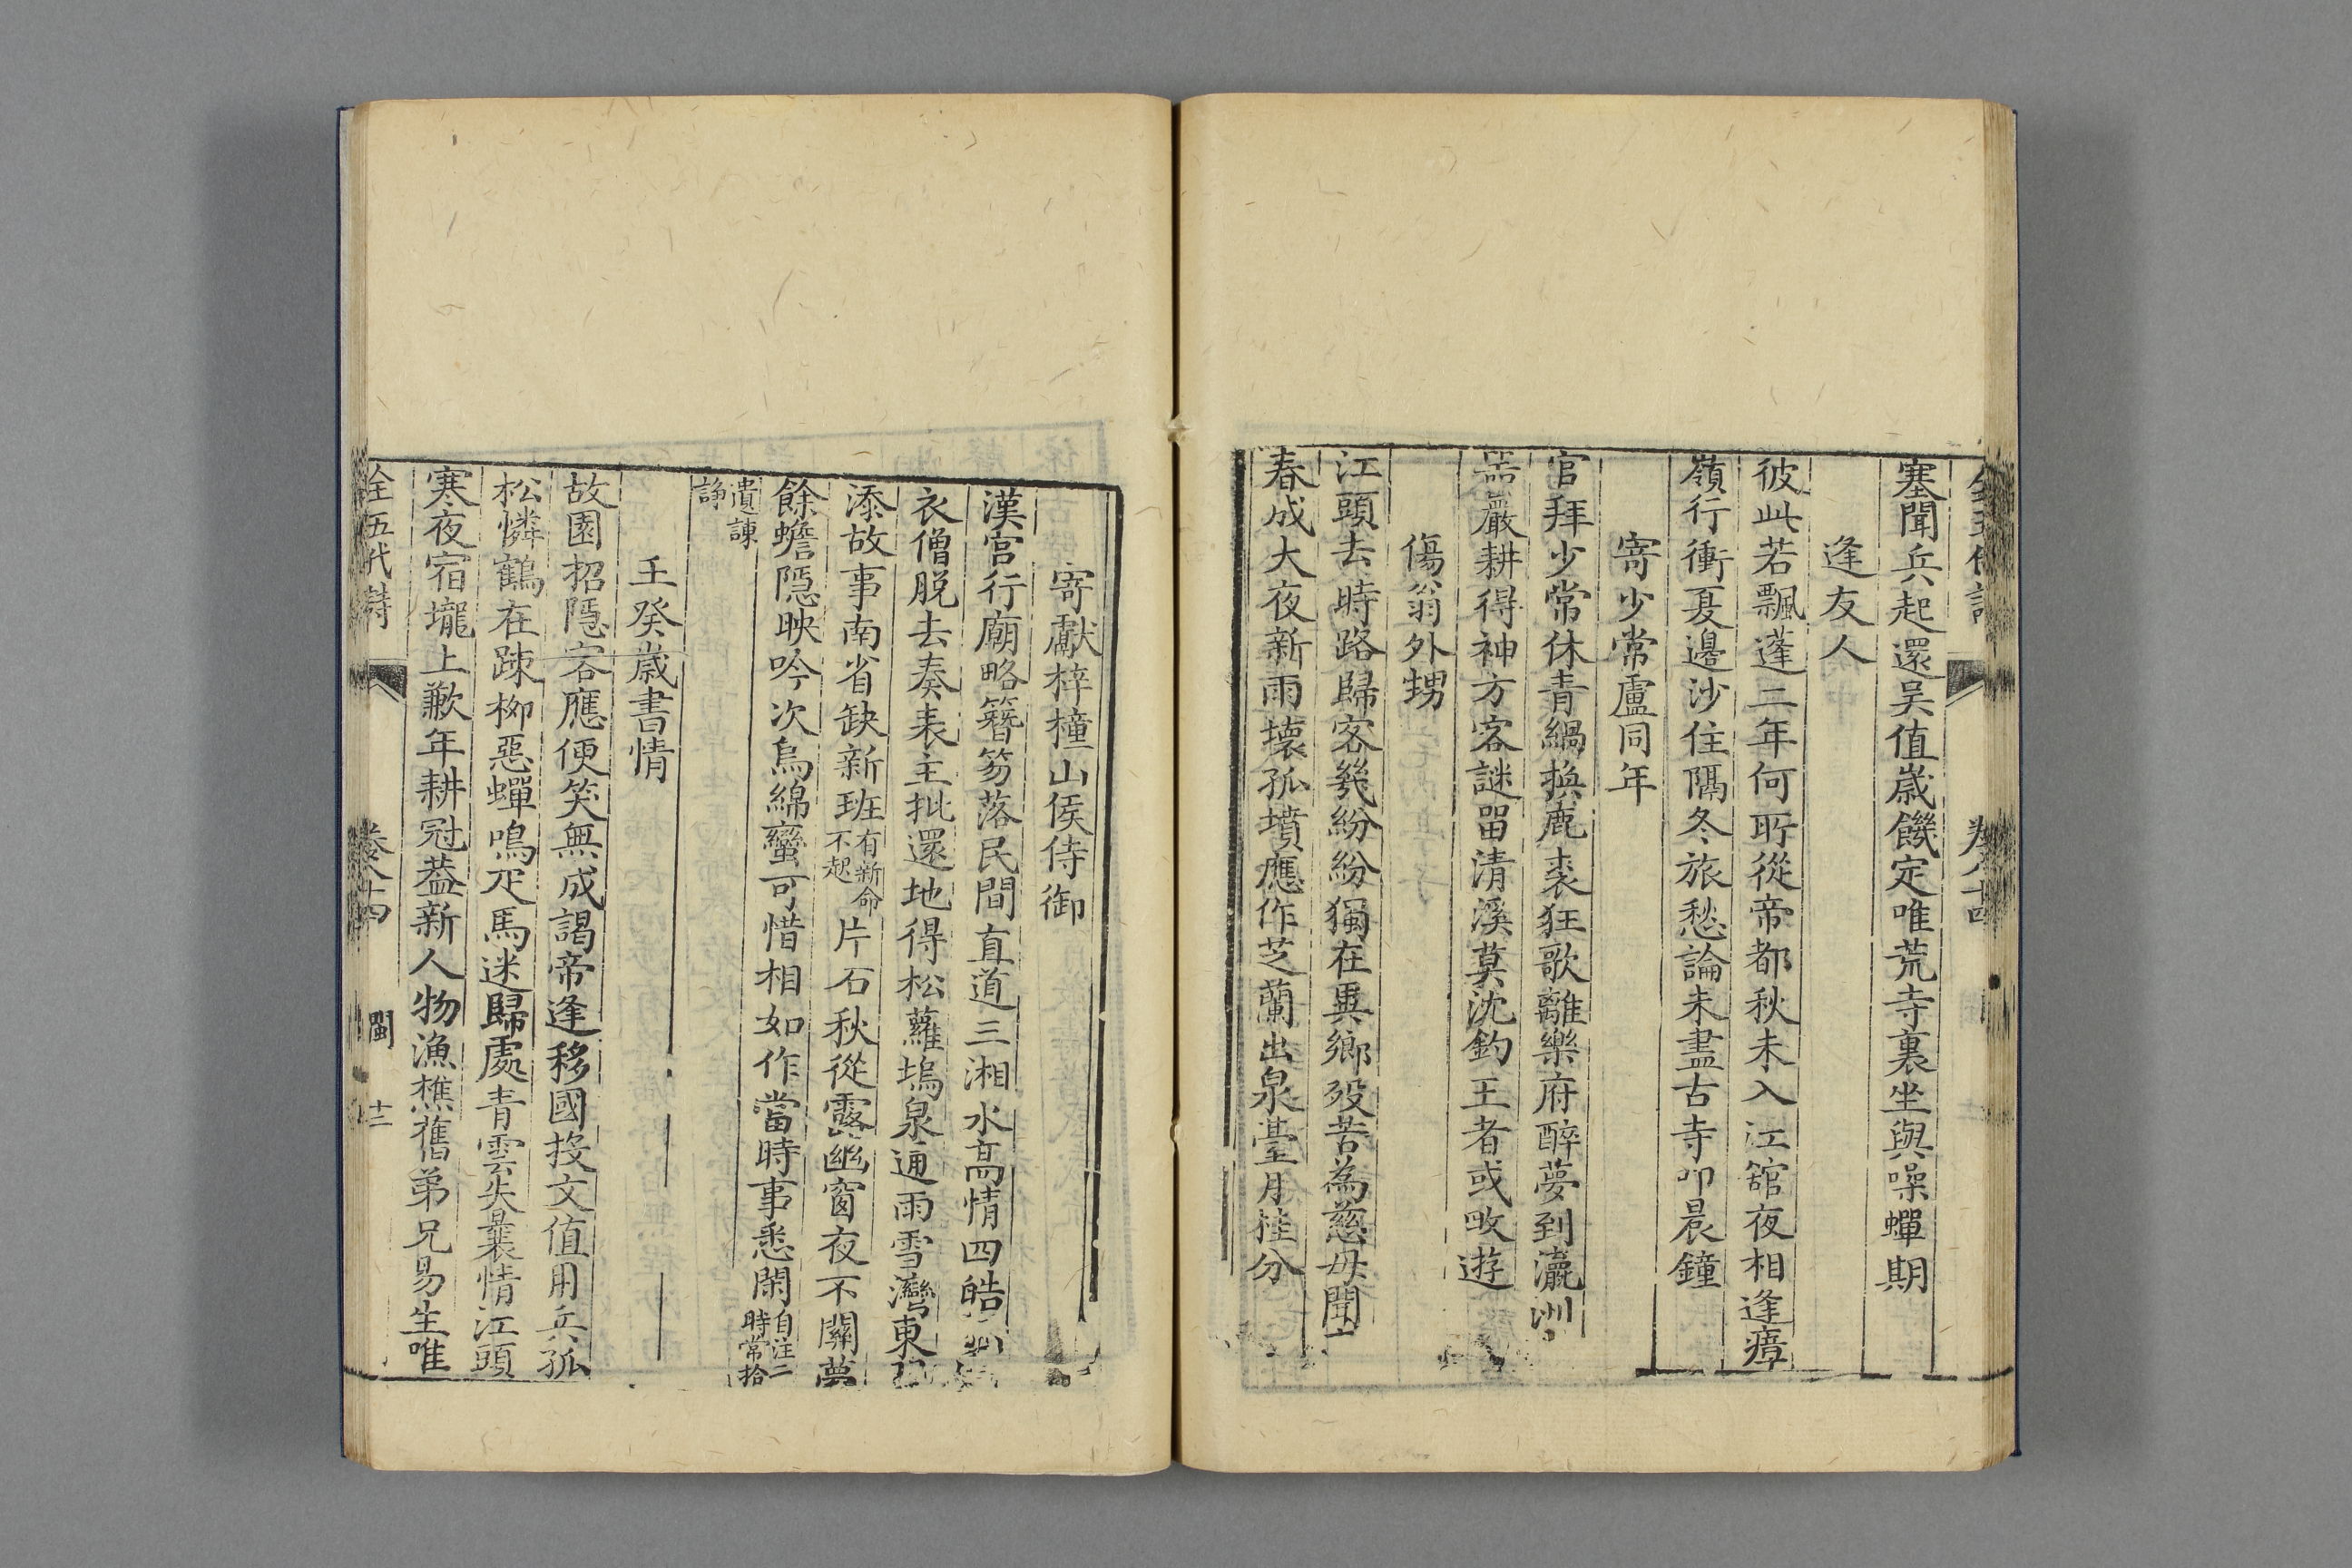 塞聞兵起還吴值歳饑定唯荒寺裏坐與噪蟬期
逢友人
彼此若飄蓬二年何所從帝都秋未入江舘夜相逢瘴
嶺行衝夏邊沙住隔冬旅愁論未盡古寺叩晨鐘
寄少常盧同年
官拜少常休青緺換鹿裘狂歌離樂府醉夢到瀛洲
嚴耕得神方客謎留清溪莫沈釣王者或畋遊
傷翁外甥
江頭去時路歸客幾紛紛獨在異鄉殁苦為慈母聞
春成大夜新雨壊孤墳應作芝蘭出泉臺月桂分
寄獻梓橦山侯侍御
漢宫行廟略簪笏落民間直道三湘水高情四皓
衣僧脱去奏表主批還地得松蘿塢泉通雨雪灣東
添故事南省缺新班有新命不起片石秋從露幽窗夜不關夢
餘蟾隱映吟次鳥綿蠻可惜相如作當時事悉閑自注二時常拾
遺諫諍
壬癸歳書情
故園招隱客應便笑無成謁帝逢移國投文值用兵孤
松憐鶴在踈柳惡蟬鳴疋馬迷歸處青雲失曩情江頭
寒夜宿壠上歉年耕冠葢新人物漁樵舊弟兄易生唯
全五代詩 卷八十四 閩 十三